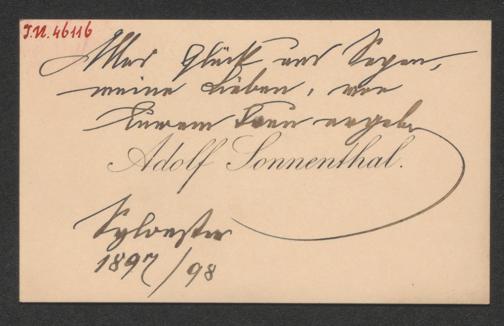 I.N. 46116
Alles Glück und Segen,
meine Lieben, von
Eurem treu ergeb.
Adolf Sonnenthal.
Sylvester
1897/98